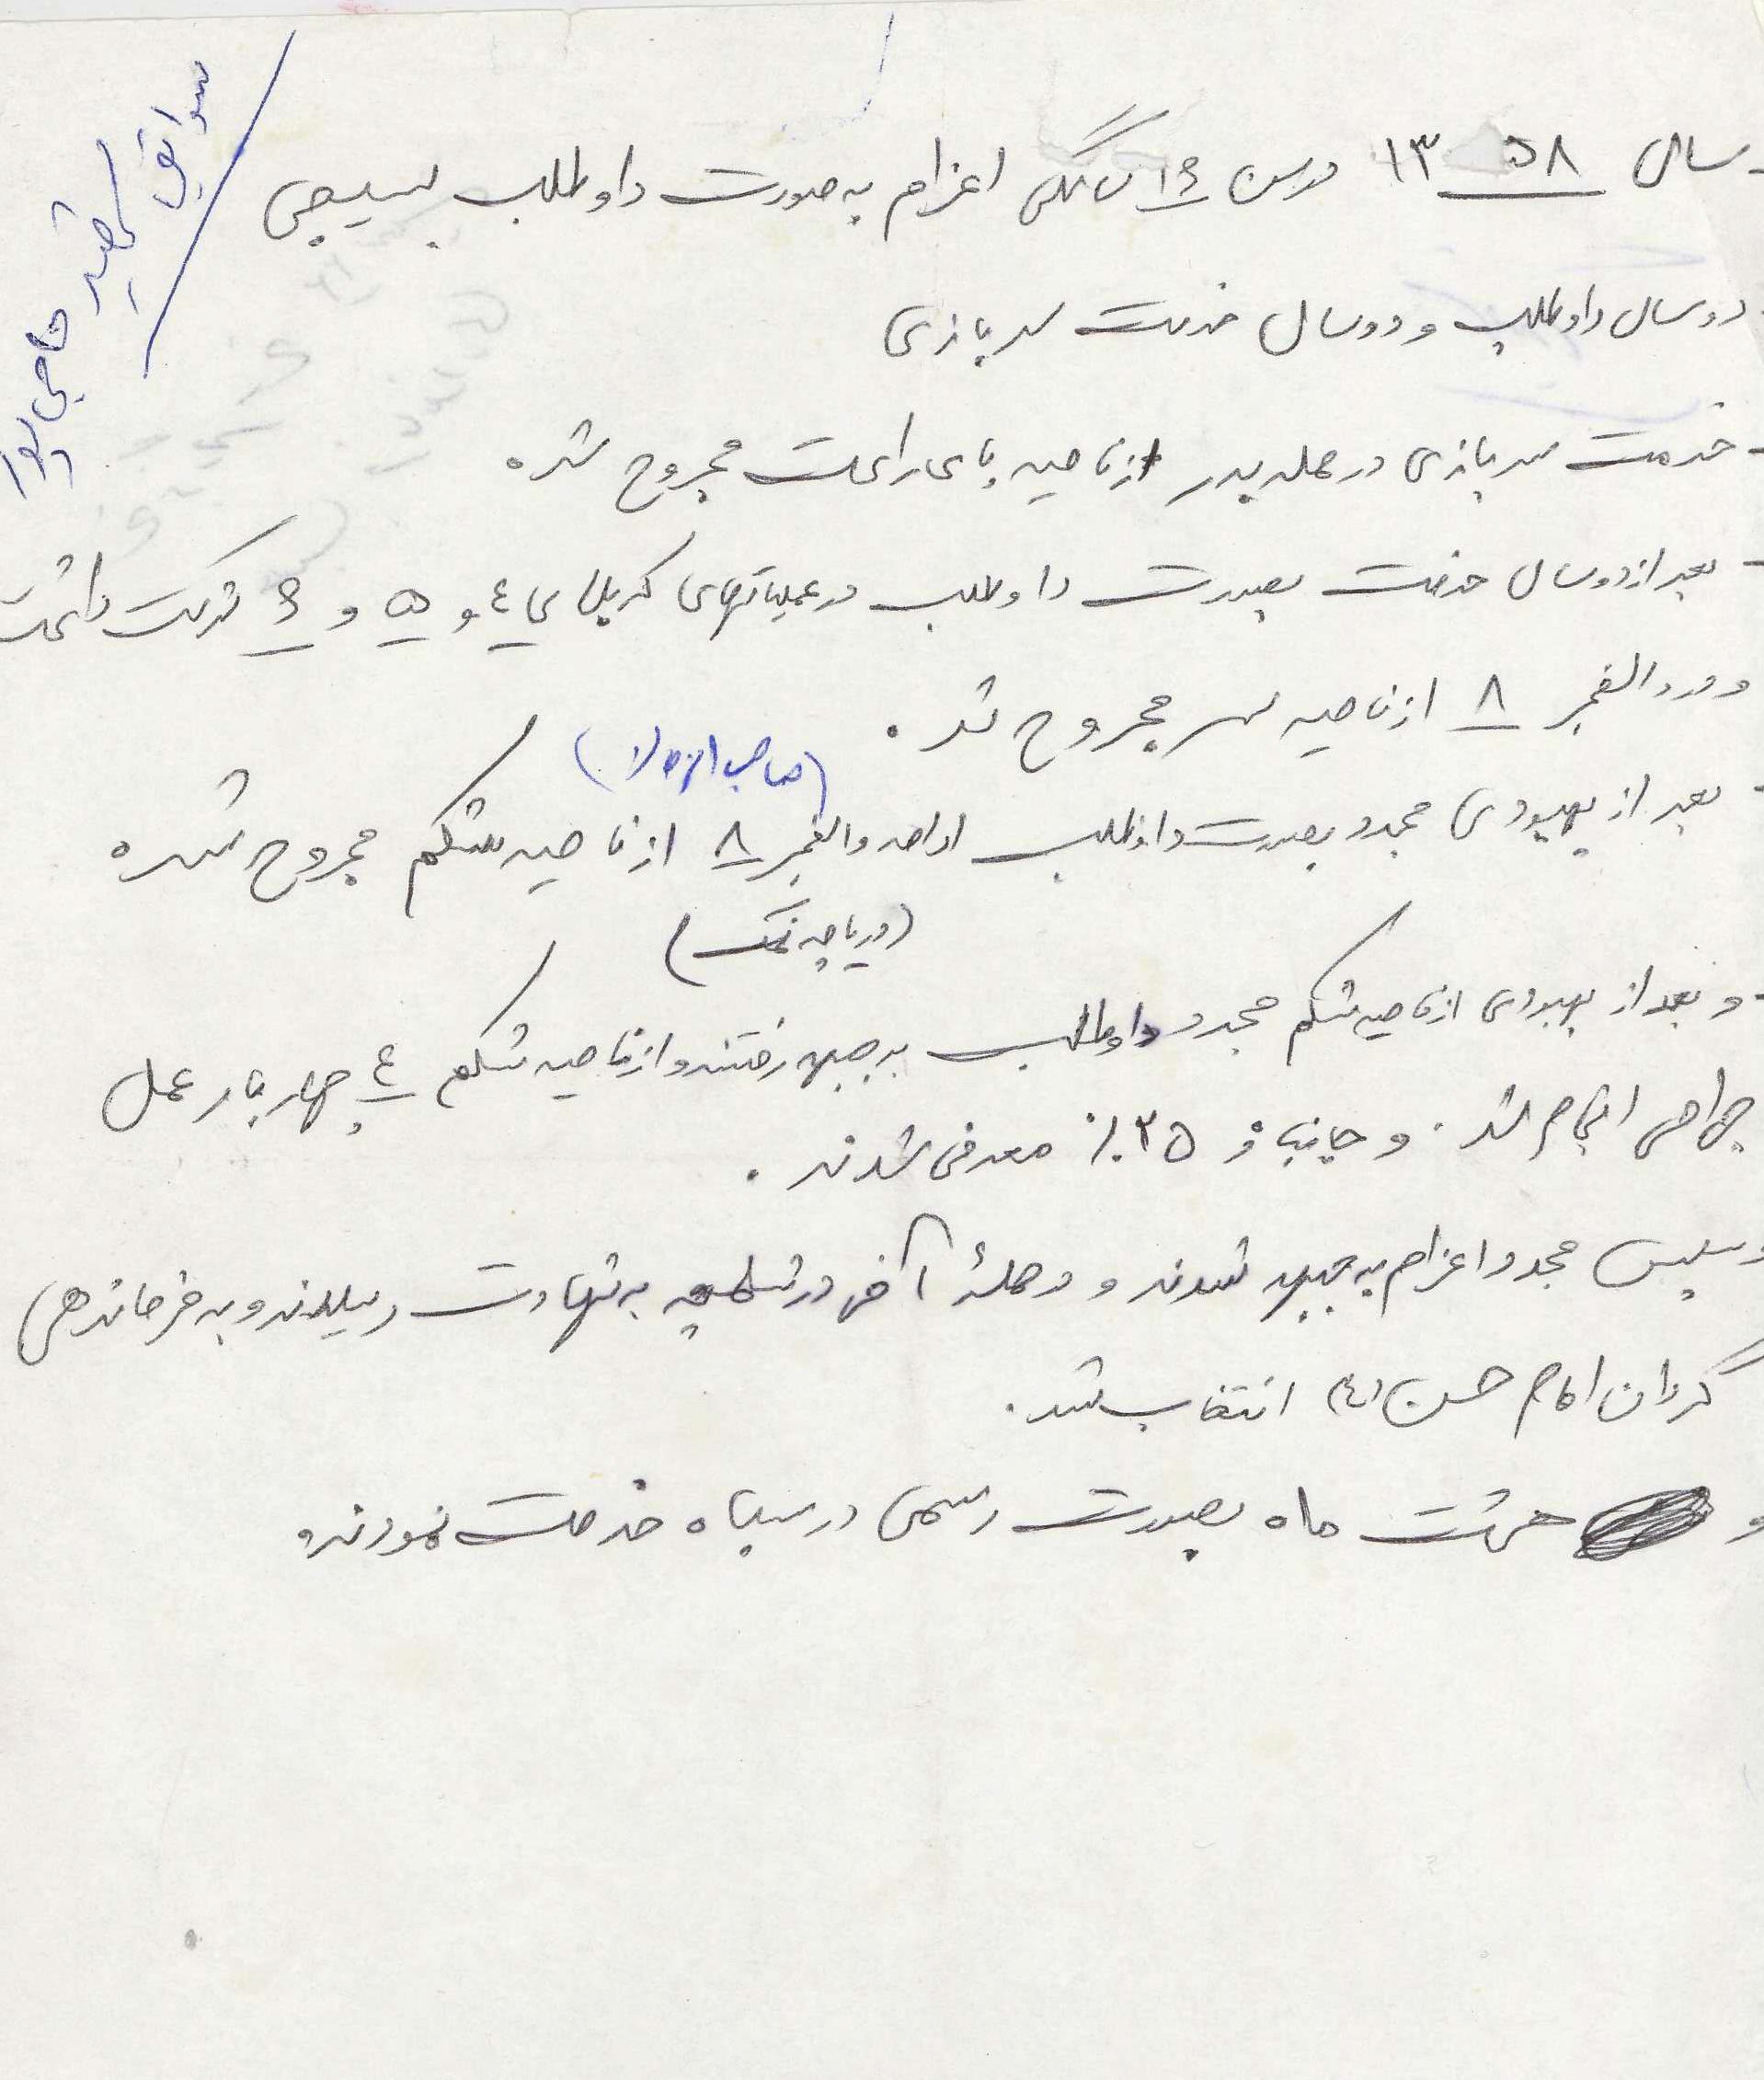 سوابق شهید حاجی پور
- سال ۱۳۵۸ در سن ۱۶ سالگی اعزام به صورت داوطلب بسیجی
- دو سال داوطلب و دو سال خدمت سربازی
- خدمت سربازی در حمله بدر از ناحیه پای راست مجروح شده
- بعد از دو سال خدمت بصورت داوطلب در عملیاتهای کربلای ۴ و ۵ و ۶ شرکت داشت
و در والفجر ۸ از ناحیه سر مجروح شد.
(صاحب الزمان)
- بعد از بهبودی مجدد بصورت داوطلب ادامه والفجر ۸ از ناحیه شکم مجروح شده
(دریاچه نمک)
- و بعد از بهبودی از ناحیه شکم مجدد داوطلب به جبهه رفتند و از ناحیه شکم ۴ چهار بار عمل
جراحی انجام شد. و جانباز ۳۵٪ معرفی شدند.
و سپس مجدد اعزام به جبهه شدند و در حمله آخر در شلمچه به شهادت رسیدند و به فرماندهی
گردان امام حسن (ع) انتخاب شد.
و هشت ماه بصورت رسمی در سپاه خدمت نمودند